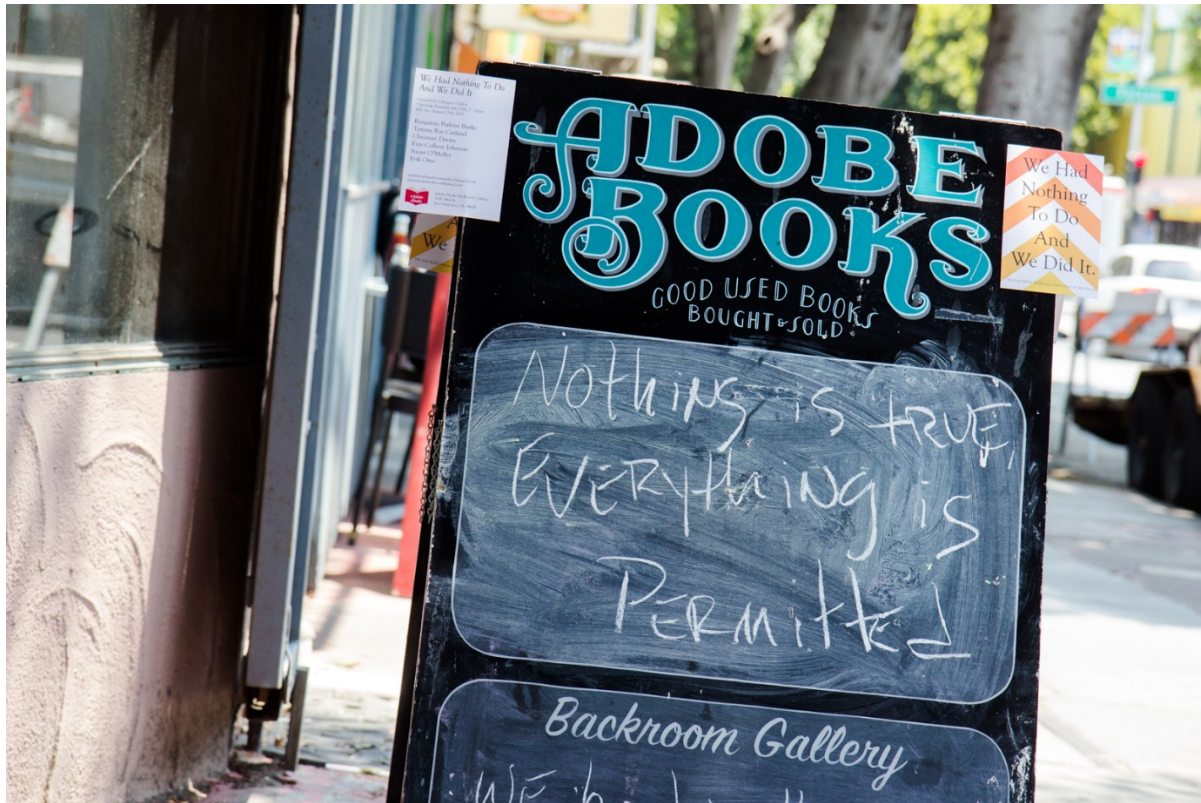 We Had Nothing To Do
And We Did It
Benjamin Perkins Burke
Tammy Rae Carland
Christian Davies
Erin Colleen Johnson
Erik Otto
ADOBE
BOOKS
GOOD USED BOOKS
BOUGHT & SOLD
We Had
Nothing
To Do
And
We Did It.
We
Nothing is TRUE,
EVERYthiNG is
PERMitted
Backroom Gallery
WE